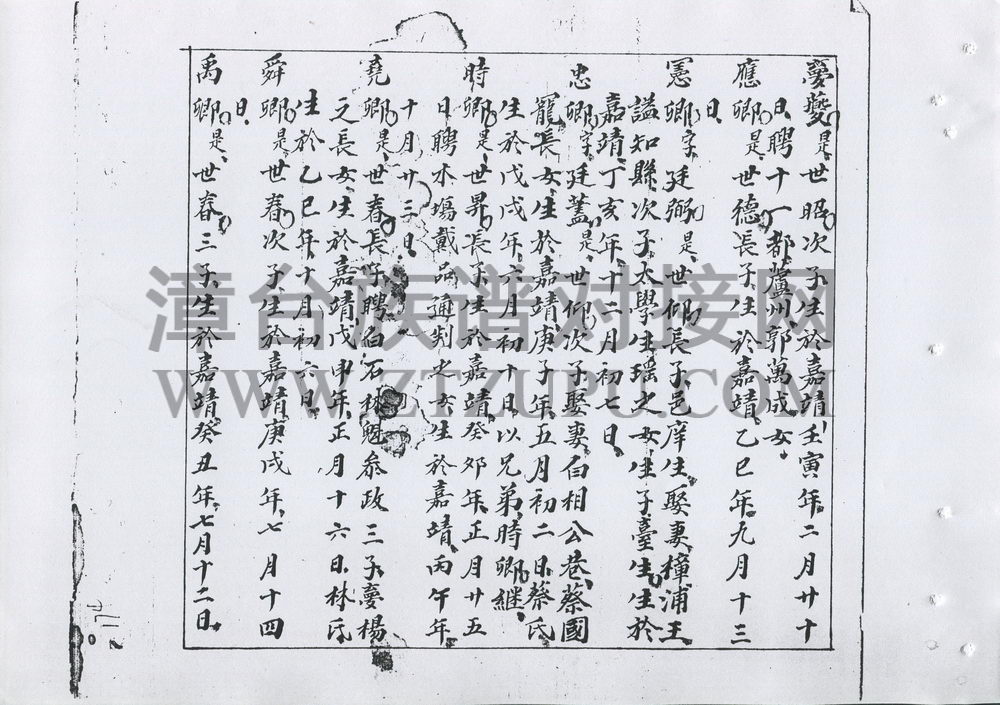 夢夔是世昭次子生於嘉靖壬寅年二月廿十
日聘十一都蘆州郭萬成女
應卿是世德長子生於嘉靖乙巳年九月十三
日
憲卿字廷弼是世仰長子邑庠生娶妻樟浦王
謚知縣次子太學生瑶之女生子臺生生於
嘉靖丁亥年十二月初七日
忠卿字廷蓋是世仰次子娶妻白相公巷蔡國
寵長女生於嘉靖庚子年五月初二日蔡氏
生於戊戌年六月初十日以兄弟時卿継
時卿是世昇長子生於嘉靖癸卯年正月廿五
日聘水塲戴品通判之女生於嘉靖丙午年
十月廿三日
堯卿是世春長子聘白石林魁叅政三子夢楊
之長女生於嘉靖戊申年正月十六日林氏
生於乙巳年十月初六日
舜卿是世春次子生於嘉靖庚戌年七月十四
日
禹卿是世春三子生於嘉靖癸丑年七月十二日
漳台族谱对接网
WWW.ZTZUPU.COM
174